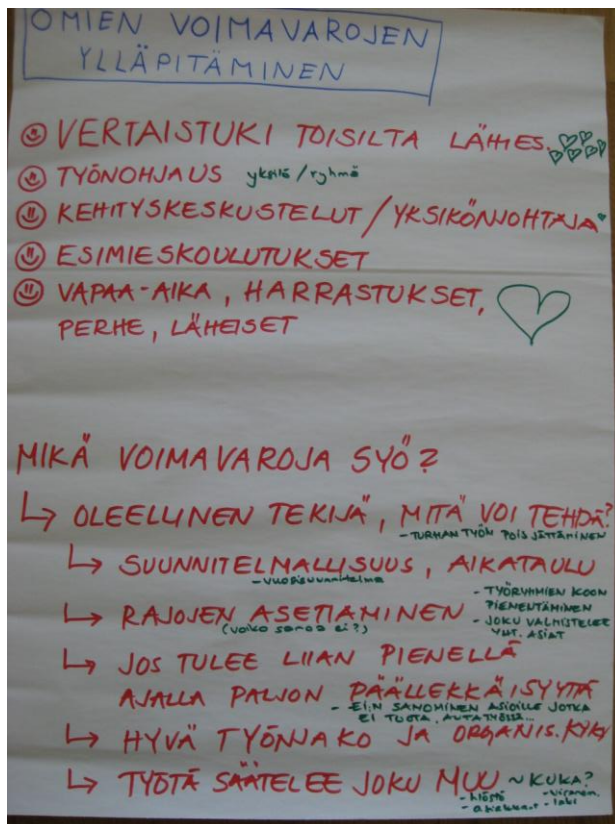 OMIEN VOIMAVAROJEN
YLLÄPITÄMINEN
VERTAISTUKI TOISILTA LÄHIES.
TYÖNOHJAUS yksilö/ryhmä
KEHITYSKESKUSTELUT/YKSIKÖNJOHTAJA
ESIMIESKOULUTUKSET
VAPAA-AIKA, HARRASTUKSET,
PERHE, LÄHEISET
MIKÄ VOIMAVAROJA SYÖ?
↳ OLEELLINEN TEKIJÄ, MITÄ VOI TEHDÄ?
- TURHAN TYÖN POIS JÄTTÄMINEN
↳ SUUNNITELMALLISUUS, AIKATAULU
- vuosisuunnitelma
↳ RAJOJEN ASETTAMINEN
(voiko sanoa ei?)
- TYÖRYHMIEN KOON
PIENENTÄMINEN
- JOKU VALMISTELEE
YHT. ASIAT
↳ JOS TULEE LIIAN PIENELLÄ
AJALLA PALJON PÄÄLLEKKÄISYYTTÄ
- EI:N SANOMINEN ASIOILLE JOTKA
EI TUOTA, AUTA TYÖSSÄ...
↳ HYVÄ TYÖNJAKO JA ORGANIS.KYKY
↳ TYÖTÄ SÄÄTELEE JOKU MUU ~ KUKA?
- hlöstö - viranom.
- asiakkaat - laki